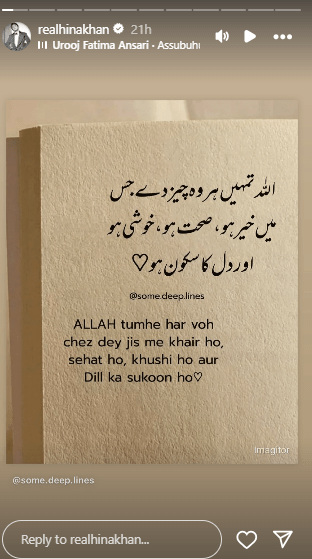 realhinakhan 21h
Urooj Fatima Ansari · Assubuhi
اللہ تمہیں ہر وہ چیز دے جس
میں خیر ہو، صحت ہو، خوشی ہو
اور دل کا سکون ہو♡
@some.deep.lines
ALLAH tumhe har voh
chez dey jis me khair ho,
sehat ho, khushi ho aur
Dill ka sukoon ho♡
Imagitor
@some.deep.lines
Reply to realhinakhan...